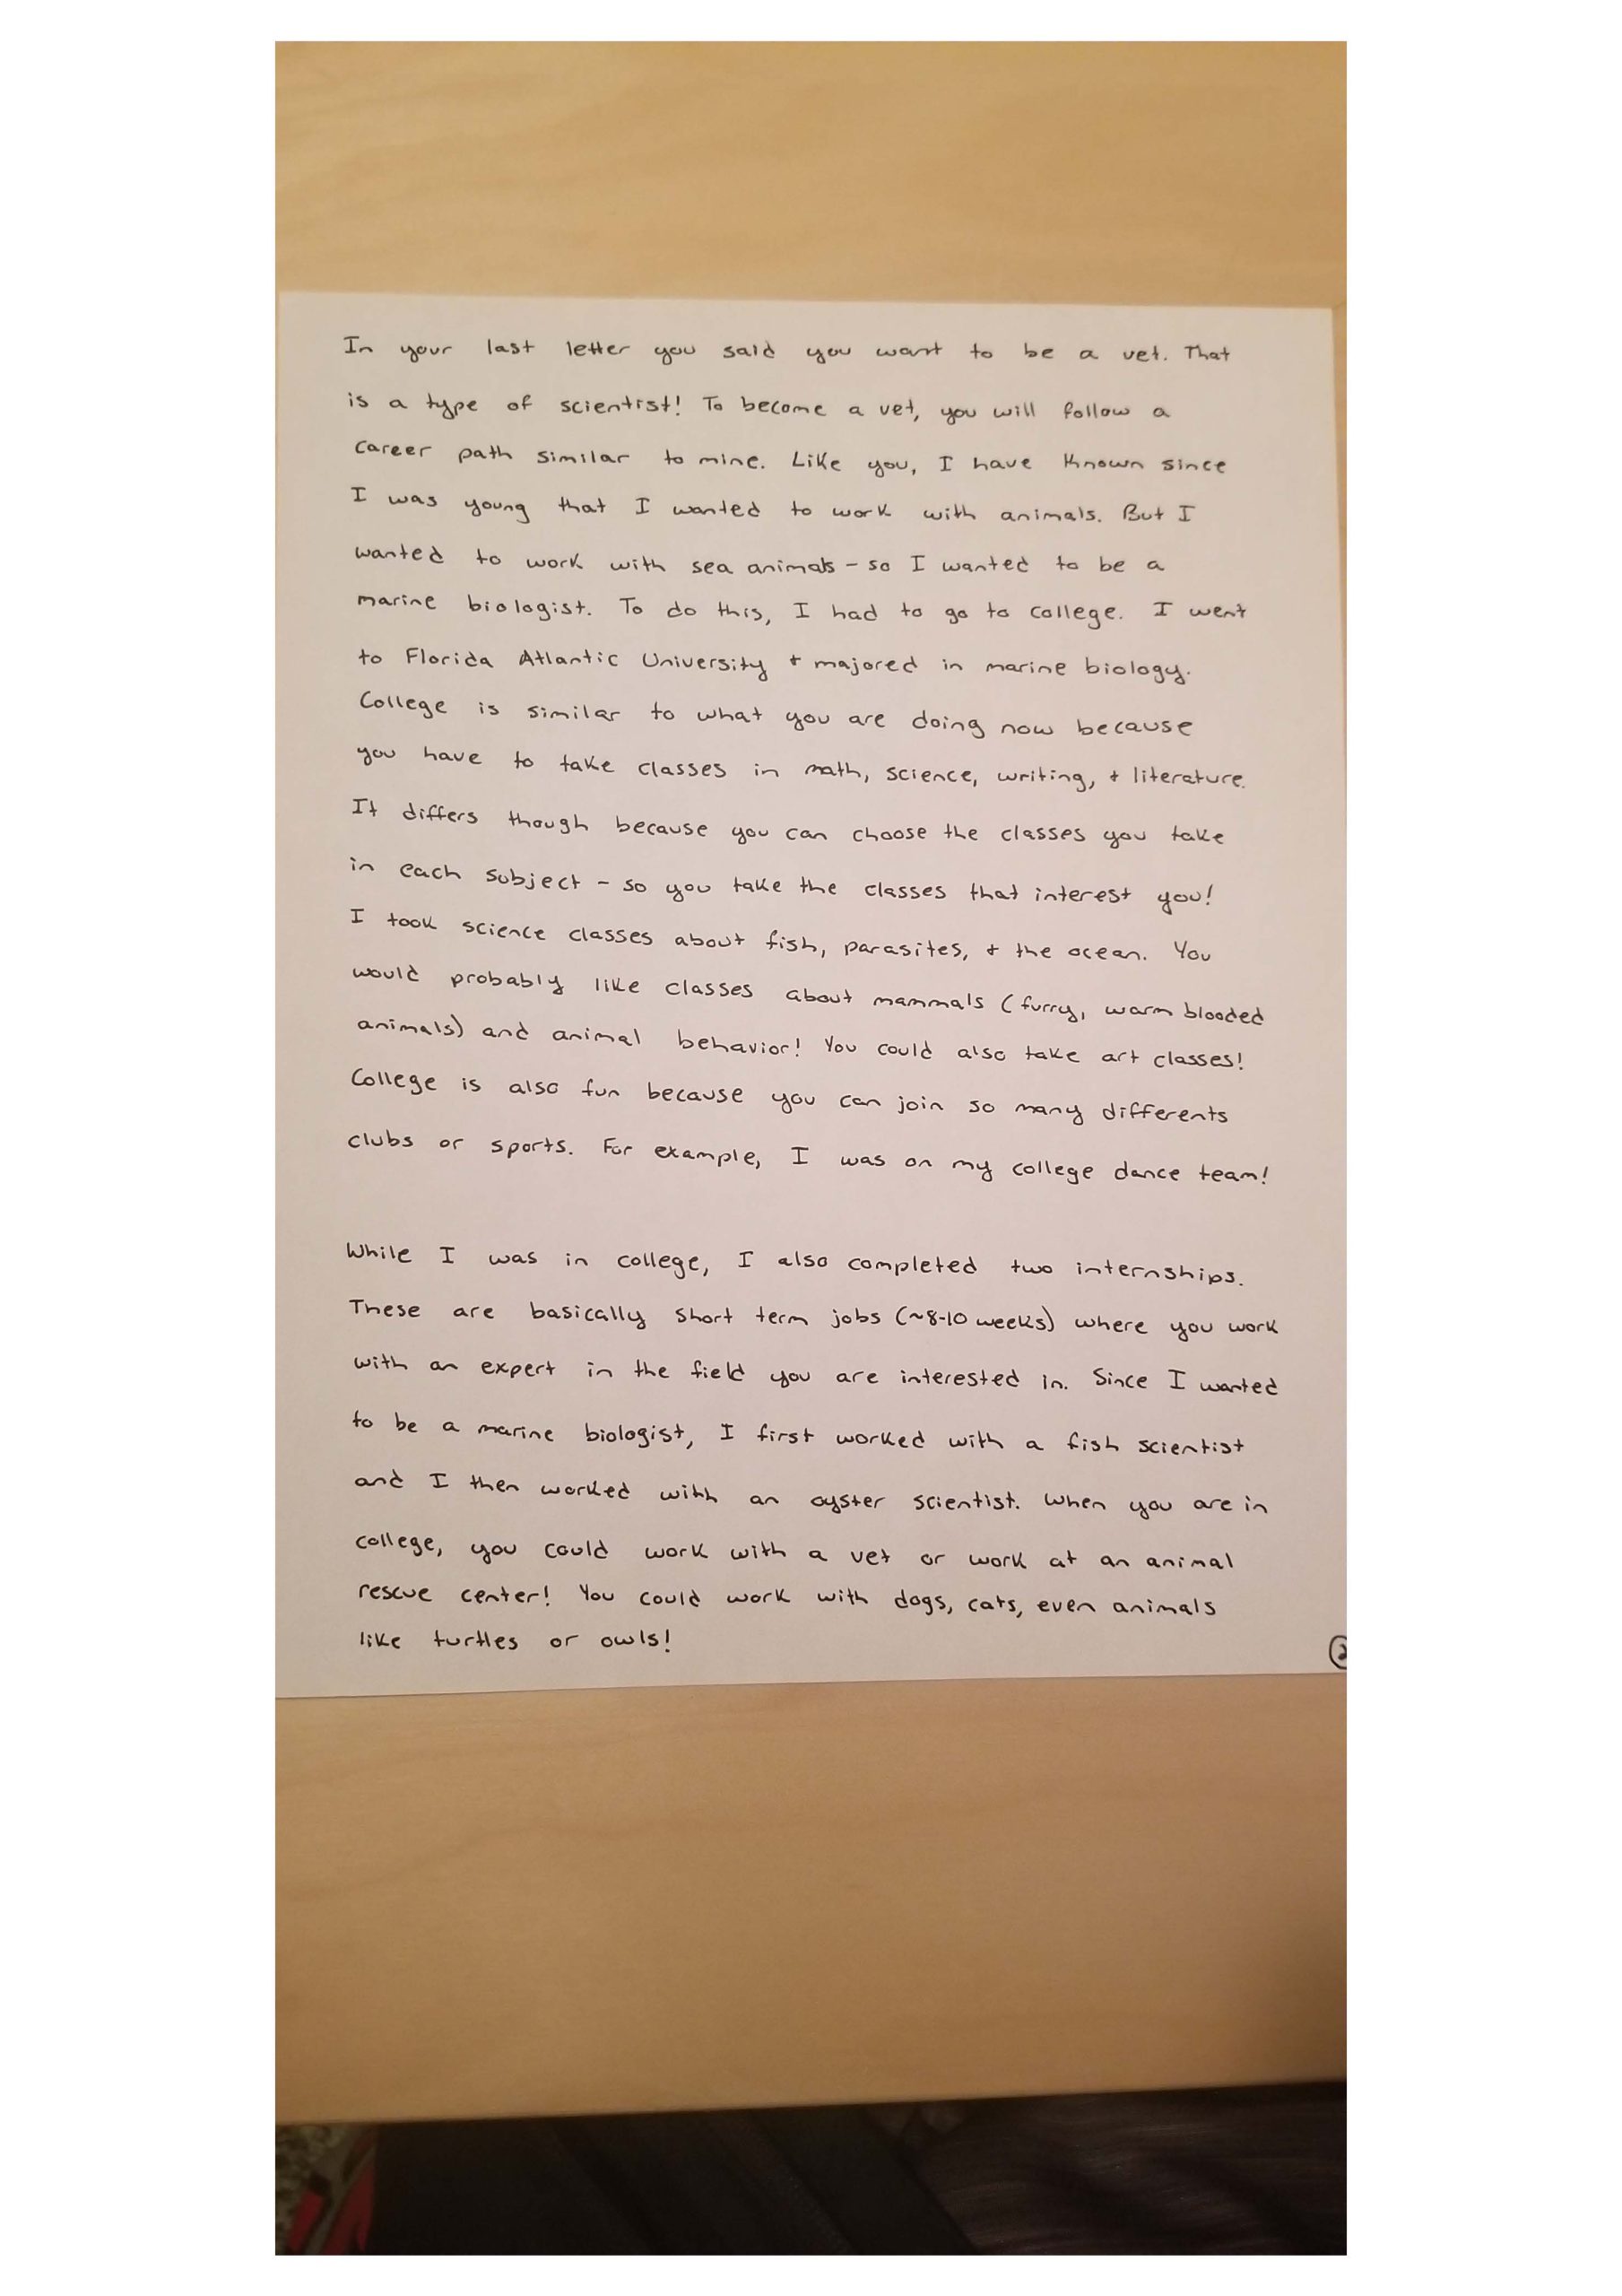 In your last letter you said you want to be a vet. That
is a type of scientist! To become a vet, you will follow a
career path similar to mine. Like you, I have known since
I was young that I wanted to work with animals. But I
wanted to work with sea animals - so I wanted to be a
marine biologist. To do this, I had to go to college. I went
to Florida Atlantic University + majored in marine biology.
College is similar to what you are doing now because
you have to take classes in math, science, writing, + literature.
It differs though because you can choose the classes you take
in each subject - so you take the classes that interest you!
I took science classes about fish, parasites, + the ocean. You
would probably like classes about mammals (furry, warm blooded
animals) and animal behavior! You could also take art classes!
College is also fun because you can join so many differents
clubs or sports. For example, I was on my college dance team!
While I was in college, I also completed two internships.
These are basically short term jobs (~8-10 weeks) where you work
with an expert in the field you are interested in. Since I wanted
to be a marine biologist, I first worked with a fish scientist
and I then worked with an oyster scientist. When you are in
college, you could work with a vet or work at an animal
rescue center! You could work with dogs, cats, even animals
like turtles or owls!
2